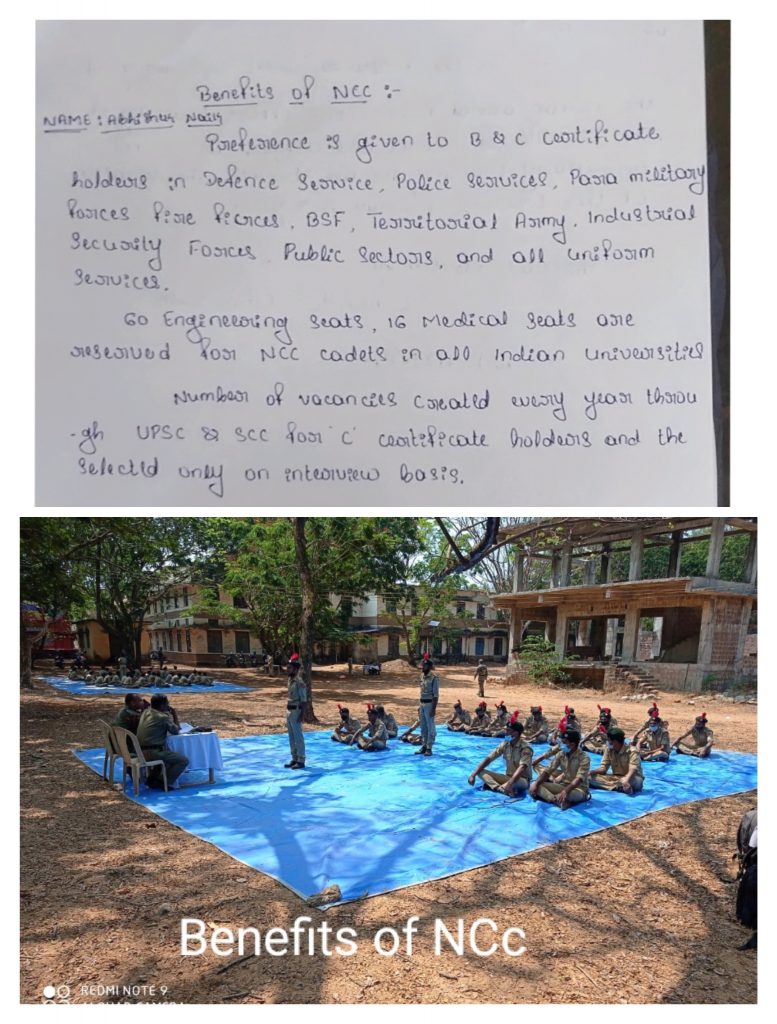 Benefits of NCC :-
NAME : Abhishus Naik
Preference is given to B & C certificate
holders in Defence Service, Police Services, Para military
Forces Fire Fierces, BSF, Territorial Army, Industrial
Security Forces, Public Sectors, and all uniform
Services.
60 Engineering Seats, 16 Medical Seats are
reserved for NCC cadets in all Indian Universities
Number of vacancies created every year throu
-gh UPSC & SCC for 'C' certificate holders and the
selected only on interview basis.
Benefits of NCc
REDMI NOTE 9